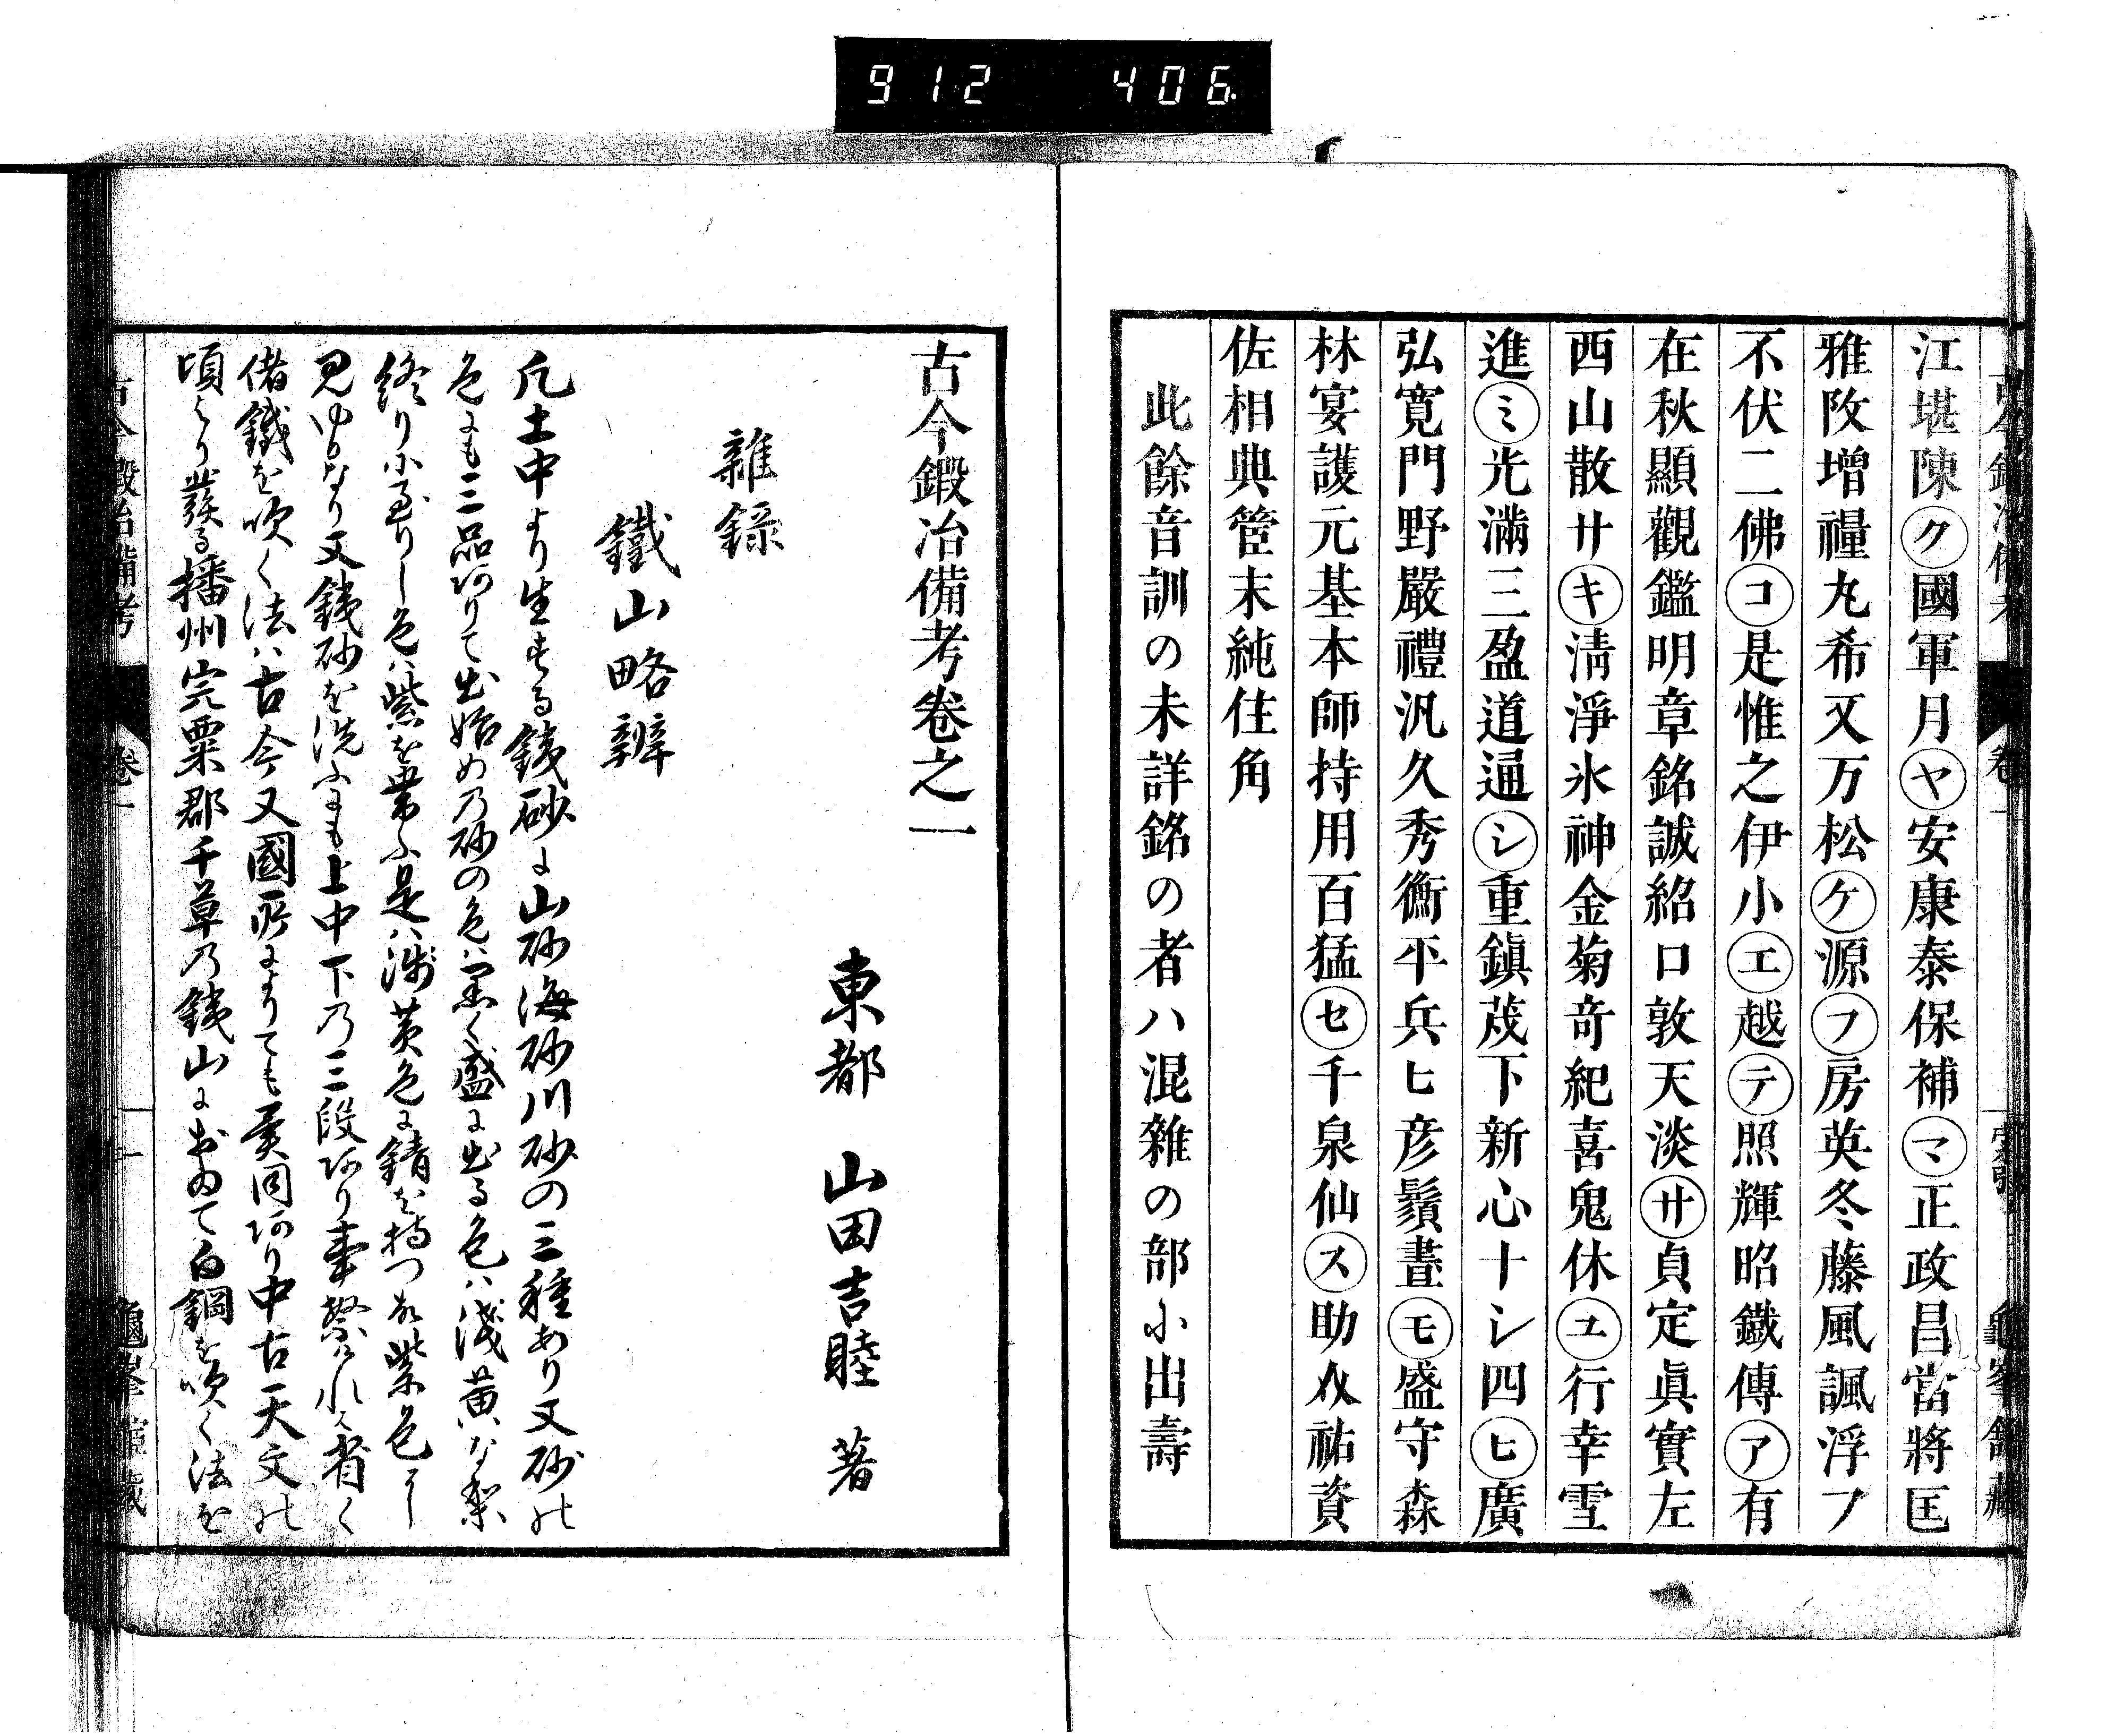 912 406
江堪陳㋗國軍月㋳安康泰保補㋮正政昌當將匡
雅攺増穜丸希又万松㋘源㋫房英冬藤風諷浮フ
不伏二佛㋙是惟之伊小㋓越㋢照輝昭鐵傳㋐有
在秋顯觀鑑明章銘誠紹口敦天淡㋚貞定眞實左
西山散サ㋖淸淨氷神金菊竒紀喜鬼休㋴行幸雪
進㋯光滿三盈道通㋛重鎭茂下新心十シ四㋪廣
弘寛門野嚴禮汎久秀衡平兵ヒ彦鬚晝㋲盛守森
林宴護元基本師持用百猛㋝千泉仙㋜助佽祐資
佐相典管末純住角
此餘音訓の未詳銘の者ハ混雜の部に出壽
古今鍛冶備考卷之一
東都 山田吉睦 著
雜錄
鐵山略辨
凡土中より生ずる鉄砂に山砂海砂川砂の三種あり又砂の
色にも三品ありて出始めの砂の色ハ黒く盛に出る色ハ淺黄な梨
終り小至りし色ハ紫を帯ふ是ハ淺黄色に錆を持つ故紫色に
見ゆるなり又鉄砂を洗ふにも上中下の三段あり事繁けれバ省く
偖鐵を吹く法ハ古今又國所によりても異同あり中古天文の
頃より發る播州宍粟郡千草の鉄山におゐて白鋼を吹く法を
古今鍛冶備考 卷一 龜峯舘藏